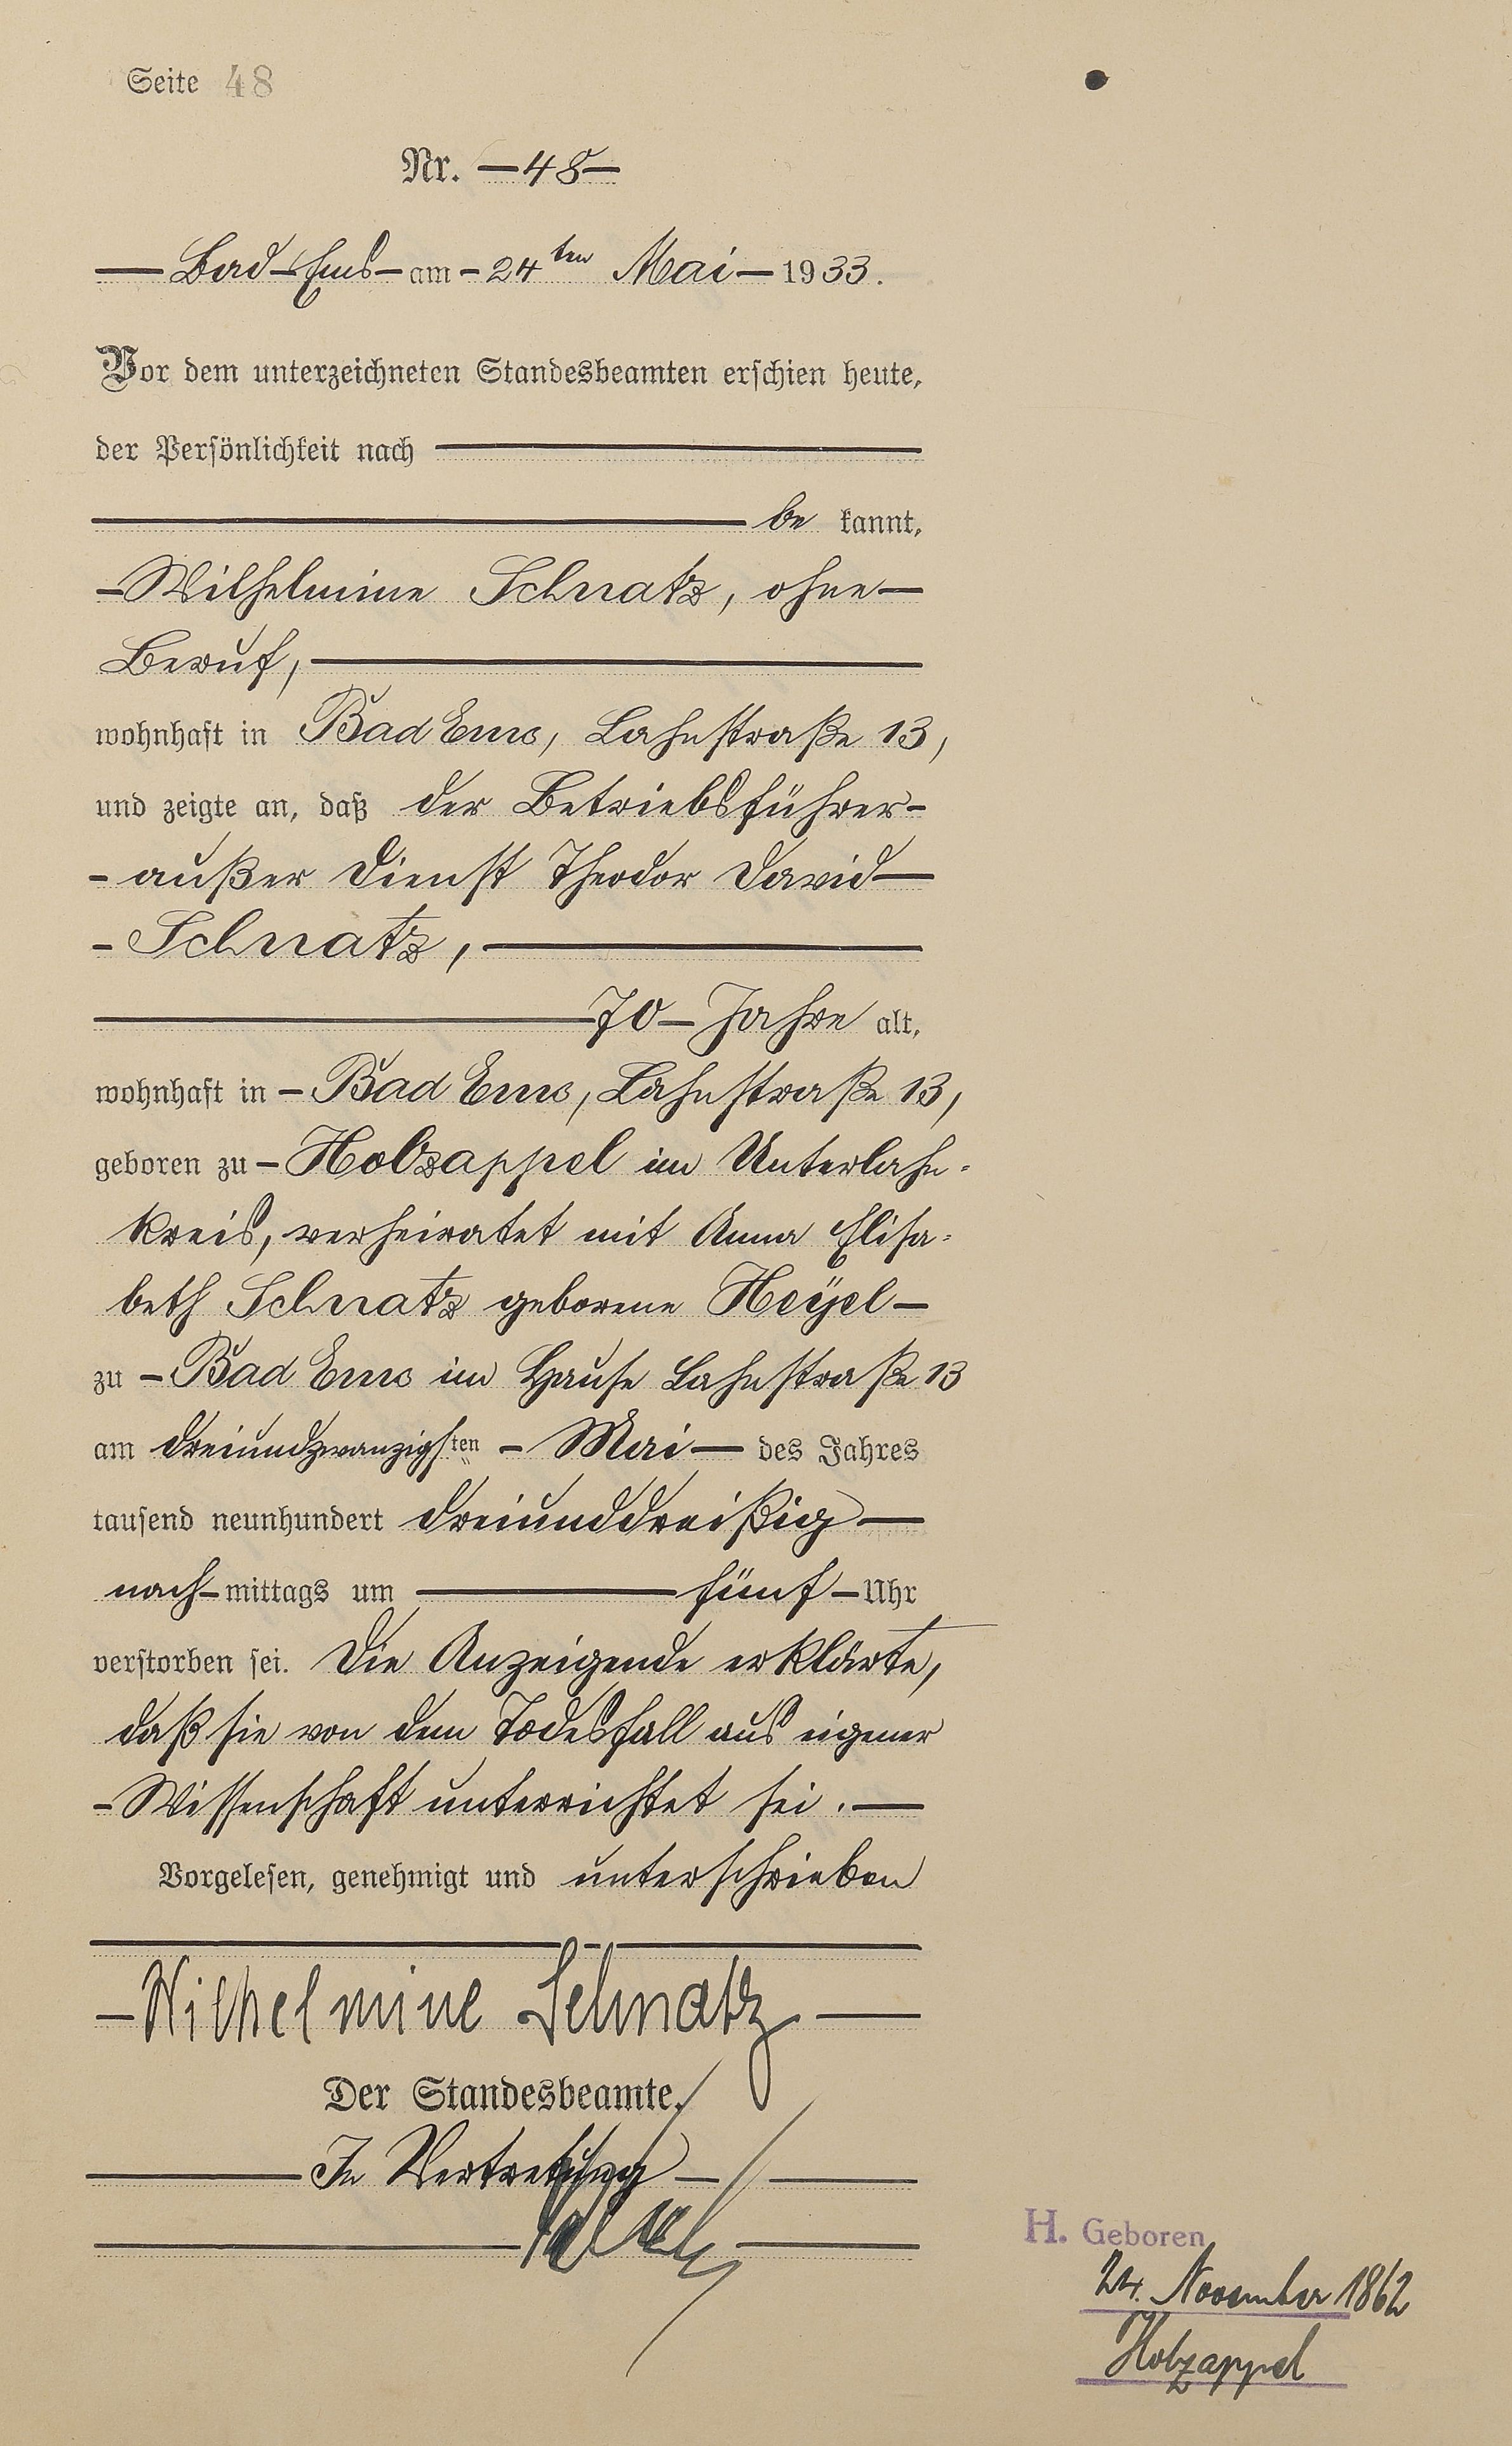 Seite 48
Nr. —48—
— Bad-Ems — am - 24ten Mai — 1933.
Vor dem unterzeichneten Standesbeamten erschien heute,
der Persönlichkeit nach —
— be kannt,
- Wilhelmine Schnatz, ohne —
Beruf, —
wohnhaft in Bad Ems, Lahnstraße 13,
und zeigte an, daß der Betriebsführer -
- außer Dienst Theodor David —
- Schnatz, —
— 70 — Jahre alt,
wohnhaft in - Bad Ems, Lahnstraße 13,
geboren zu - Holzappel im Unterlahn-
kreis, verheiratet mit Anna Elisa-
beth Schnatz geborene Heÿel —
zu - Bad Ems im Hause Lahnstraße 13
am dreiundzwanzigsten - Mai — des Jahres
tausend neunhundert dreiunddreißig —
nach - mittags um — fünf — Uhr
verstorben sei. Die Anzeigende erklärte,
daß sie von dem Todesfall aus eigener
- Wissenschaft unterrichtet sei. —
Vorgelesen, genehmigt und unterschrieben
— Wilhelmine Schnatz —
Der Standesbeamte.
— In Vertretung —
H. Geboren
24. November 1862
Holzappel